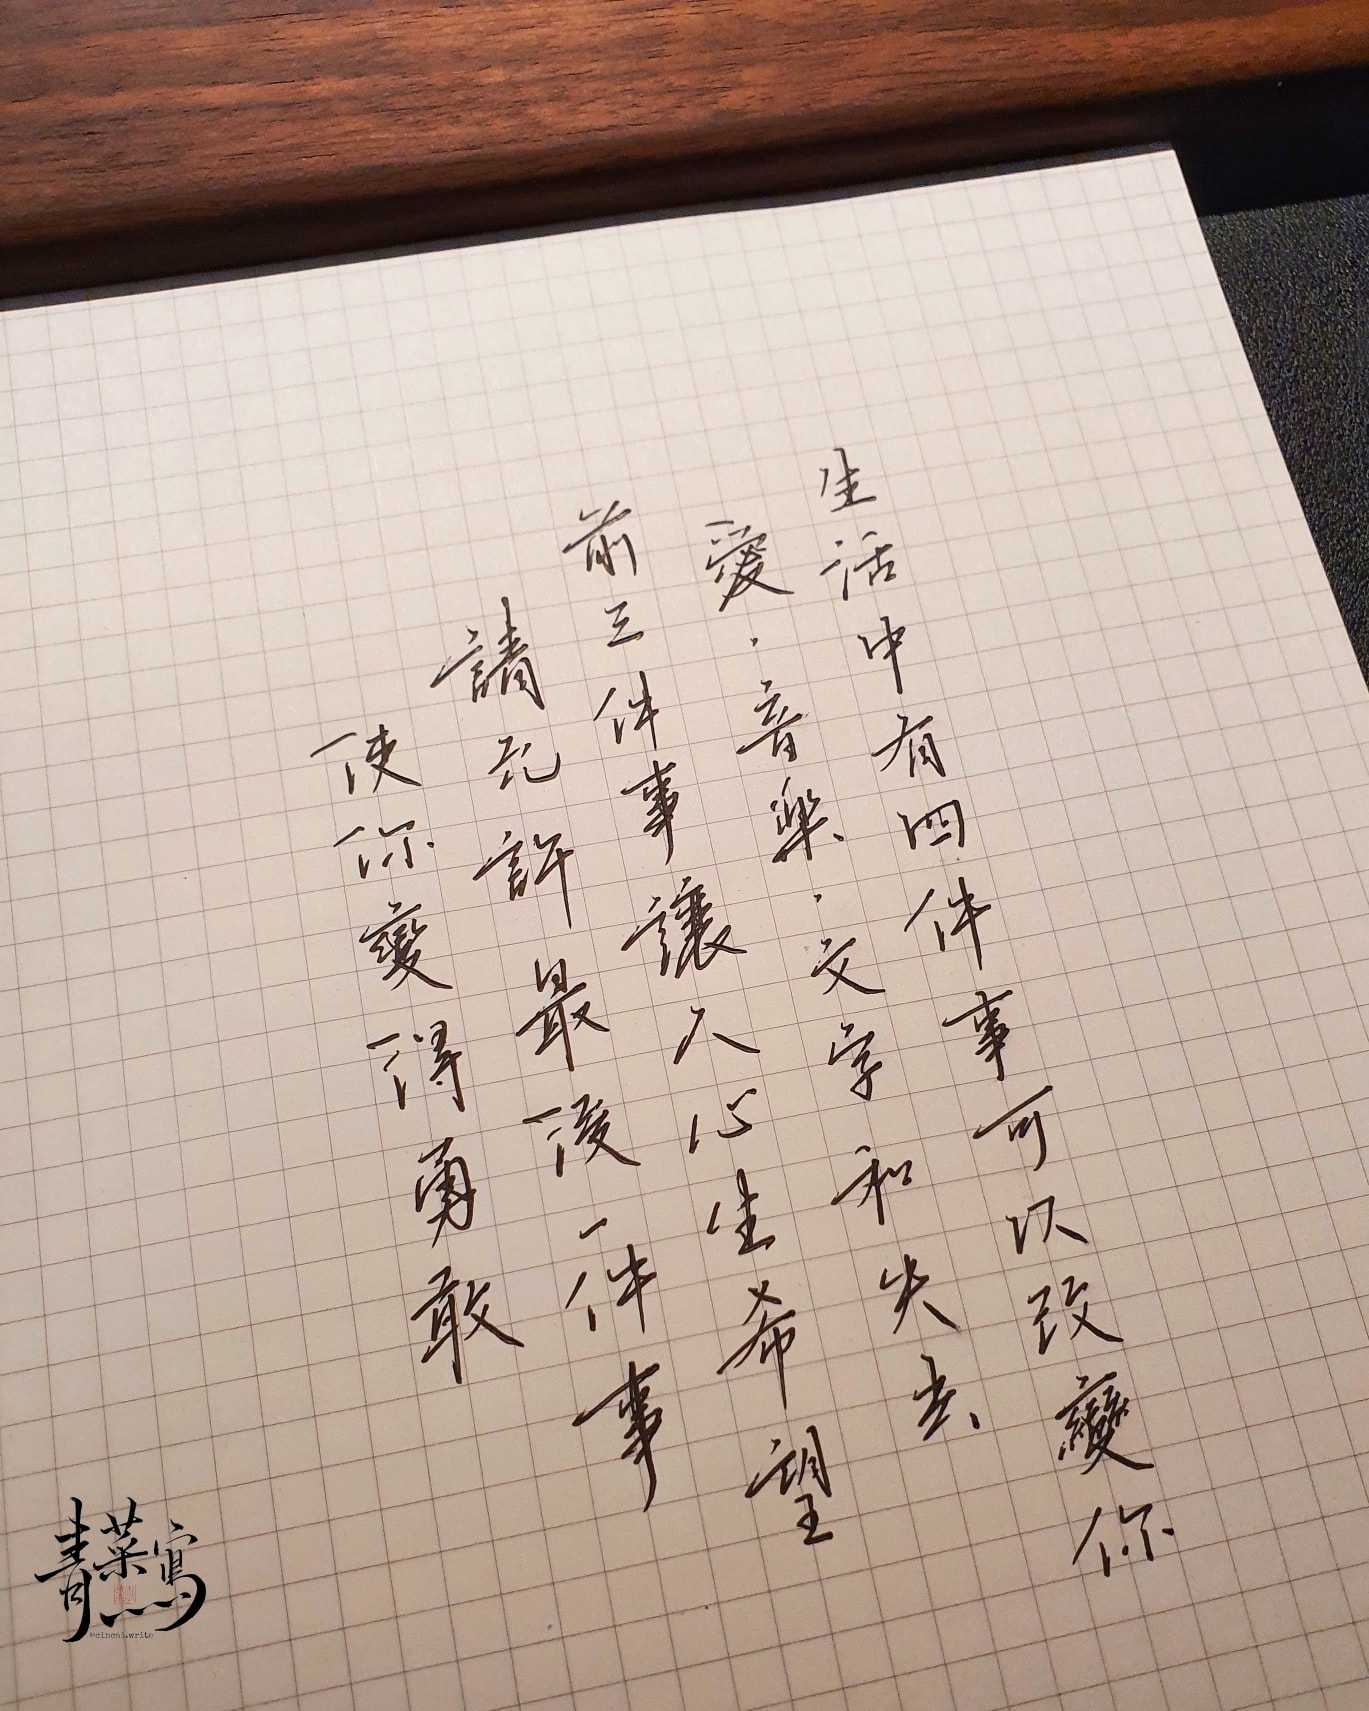 生活中有四件事可以改變你
愛．音樂．文字和失去
前三件事讓人心生希望
請允許最後一件事
使你變得勇敢
青菜寫